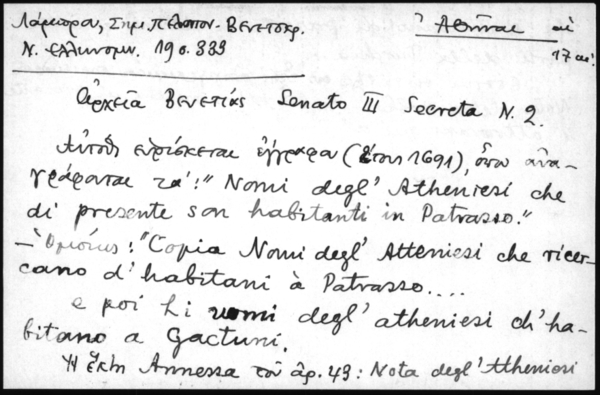 Λάμπρου, Σημ. Πελοπον. Βενετοκρ.
Ν. Ελληνομν. 19 σ. 333
Ἀθῆναι
17 αι'
Ἀρχεῖα Βενετίας Senato III Secreta N. 2.
Αὐτόθι εὑρίσκεται ἔγγραφα (ἔτους 1691), ὅπου ἀνα-
γράφονται τά: "Nomi degl' Atheniesi che
di presente son habitanti in Patrasso."
— Ὁμοίως: "Copia Nomi degl' Atteniesi che ricer-
cano d' habitani à Patrasso....
e poi li nomi degl' atheniesi ch' ha-
bitano a Gactuni.
Ἡ ἕκτη Annessa τοῦ ἀρ. 49: Nota degl' Attheniesi